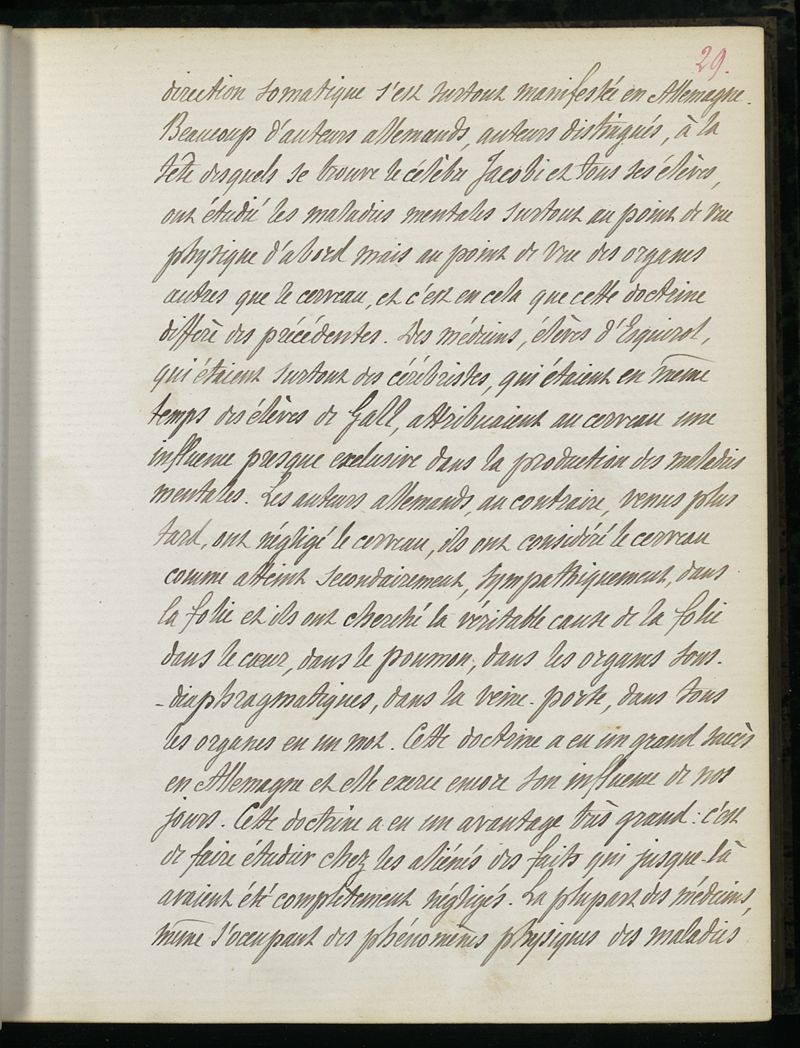 29.
direction somatique s'est surtout manifestée en Allemagne.
Beaucoup d'auteurs allemands, auteurs distingués, à la
tête desquels se trouve le célèbre Jacobi et tous ses élèves,
ont étudié les maladies mentales surtout au point de vue
physique d'abord mais au point de vue des organes
autres que le cerveau, et c'est en cela que cette doctrine
diffère des précédentes. Des médecins, élèves d'Esquirol,
qui étaient surtout des cérébristes, qui étaient en même
temps des élèves de Gall, attribuaient au cerveau une
influence presque exclusive dans la production des maladies
mentales. Les auteurs allemands, au contraire, venus plus
tard, ont négligé le cerveau, ils ont considéré le cerveau
comme atteint secondairement, sympathiquement, dans
la folie et ils ont cherché la véritable cause de la folie
dans le cœur, dans le poumon, dans les organes sous-
-diaphragmatiques, dans la veine-porte, dans tous
les organes en un mot. Cette doctrine a eu un grand succès
en Allemagne et elle exerce encore son influence de nos
jours. Cette doctrine a eu un avantage très grand: c'est
de faire étudier chez les aliénés des faits qui jusque-là
avaient été complètement négligés. La plupart des médecins,
même s'occupant des phénomènes physiques des maladies